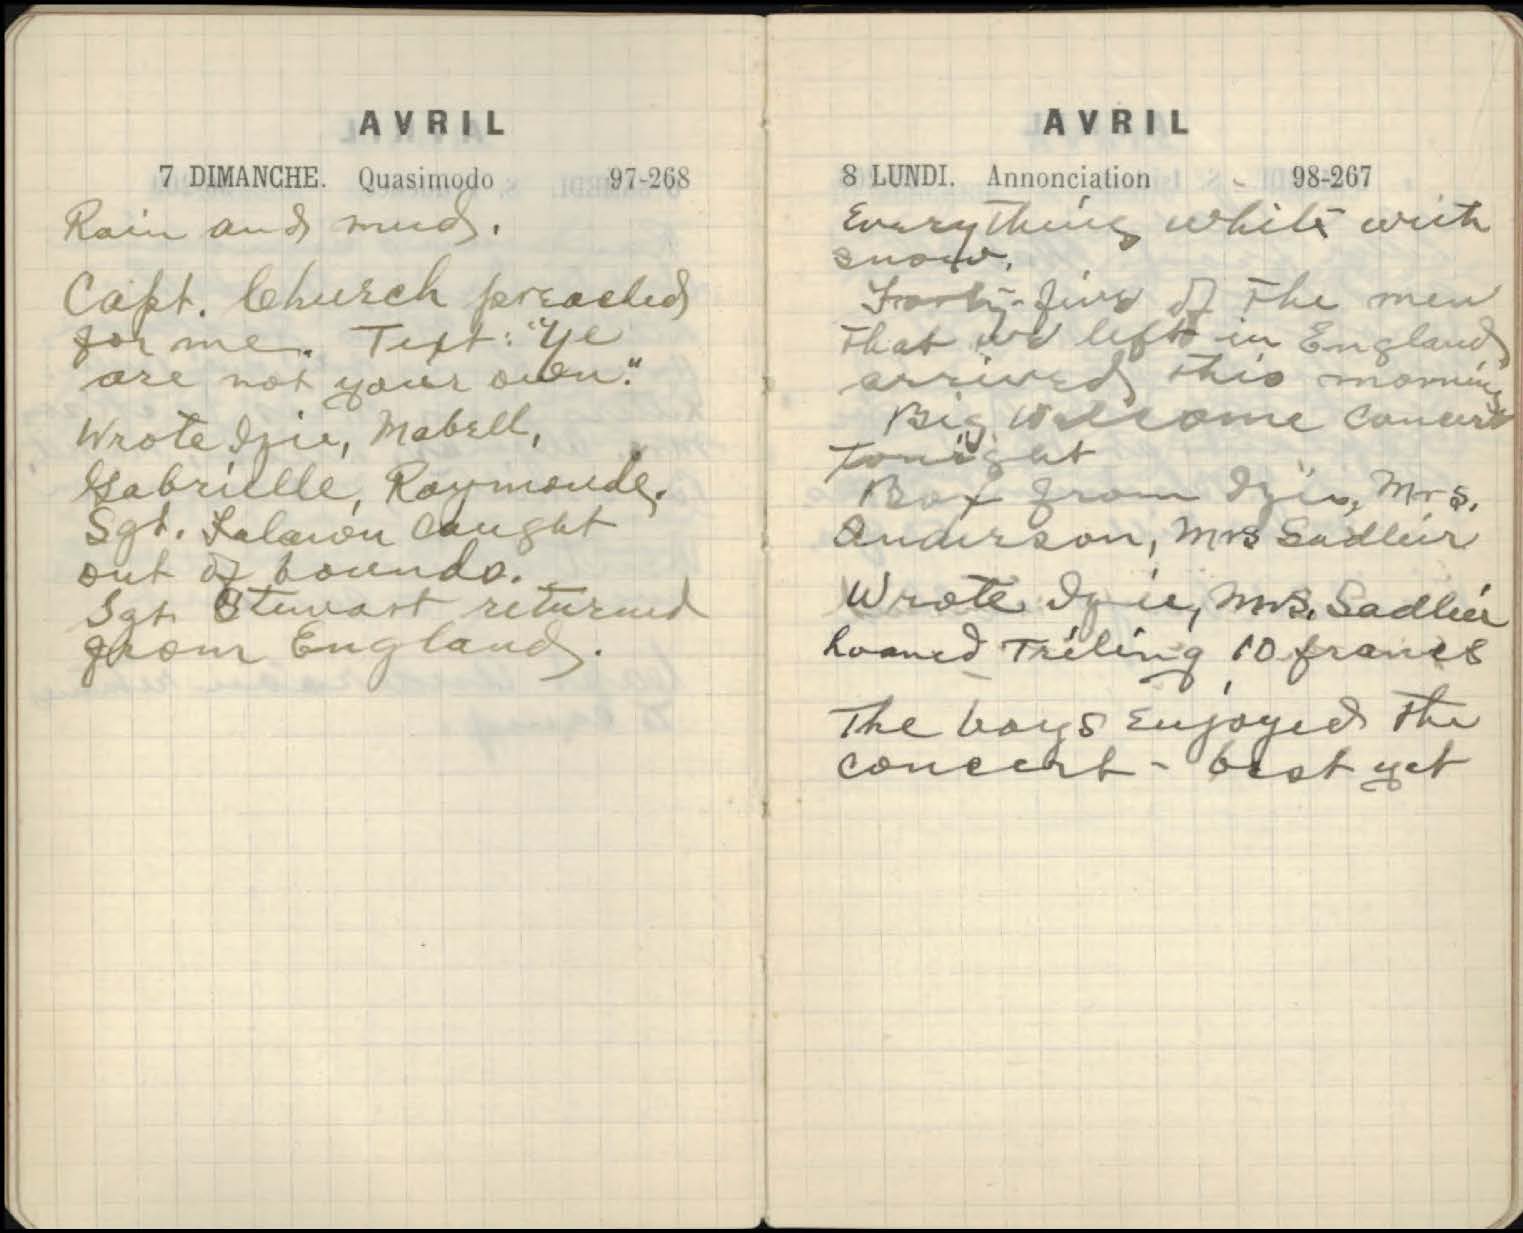 AVRIL
7 DIMANCHE. Quasimodo 97-268
Rain and mud.
Capt. Church preached
for me. Text: "Ye
are not your own."
Wrote Izie, Mabell,
Gabrielle, Raymonde.
Sgt. caught
out of bounds.
Sgt. Stewart returned
from England.
AVRIL
8 LUNDI. Annonciation 98-267
Everything white with
snow.
Forty-five of the men
that we left in England
arrived this morning
Big welcome concert
tonight
Box from Izie, Mrs.
Anderson, Mrs Sadleir
Wrote Izie, Mrs. Sadleir
Loaned 10 francs
The boys enjoyed the
concert - best yet